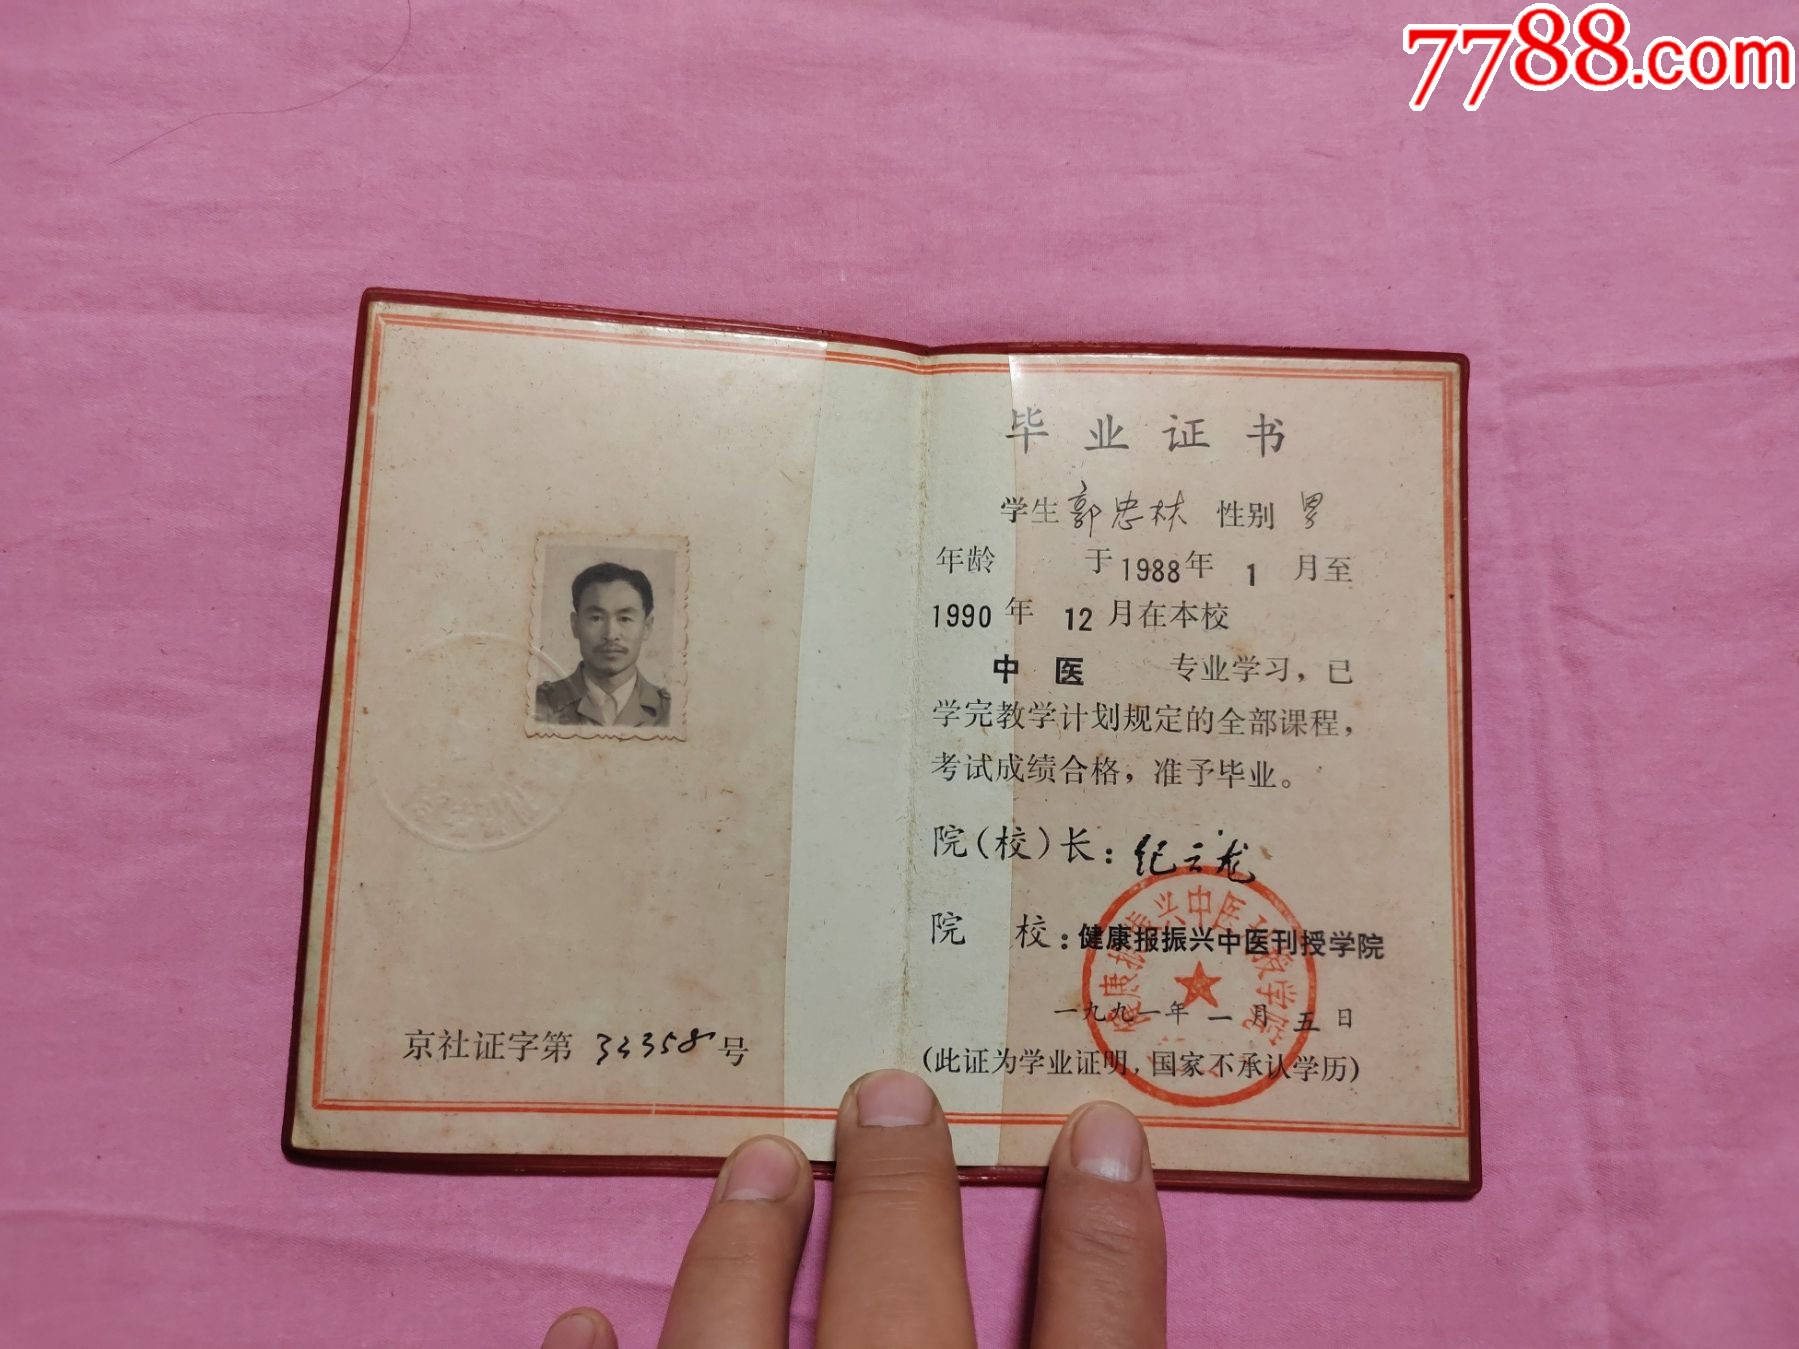 7788.com
京社证字第 33358 号
毕业证书
学生 郭忠林 性别 男
年龄 于1988年 1 月至
1990 年 12 月在本校
中医 专业学习，已
学完教学计划规定的全部课程，
考试成绩合格，准予毕业。
院（校）长：纪云龙
院 校：健康报振兴中医刊授学院
一九九一年 一 月 五 日
（此证为学业证明，国家不承认学历）
健康报振兴中医刊授学院